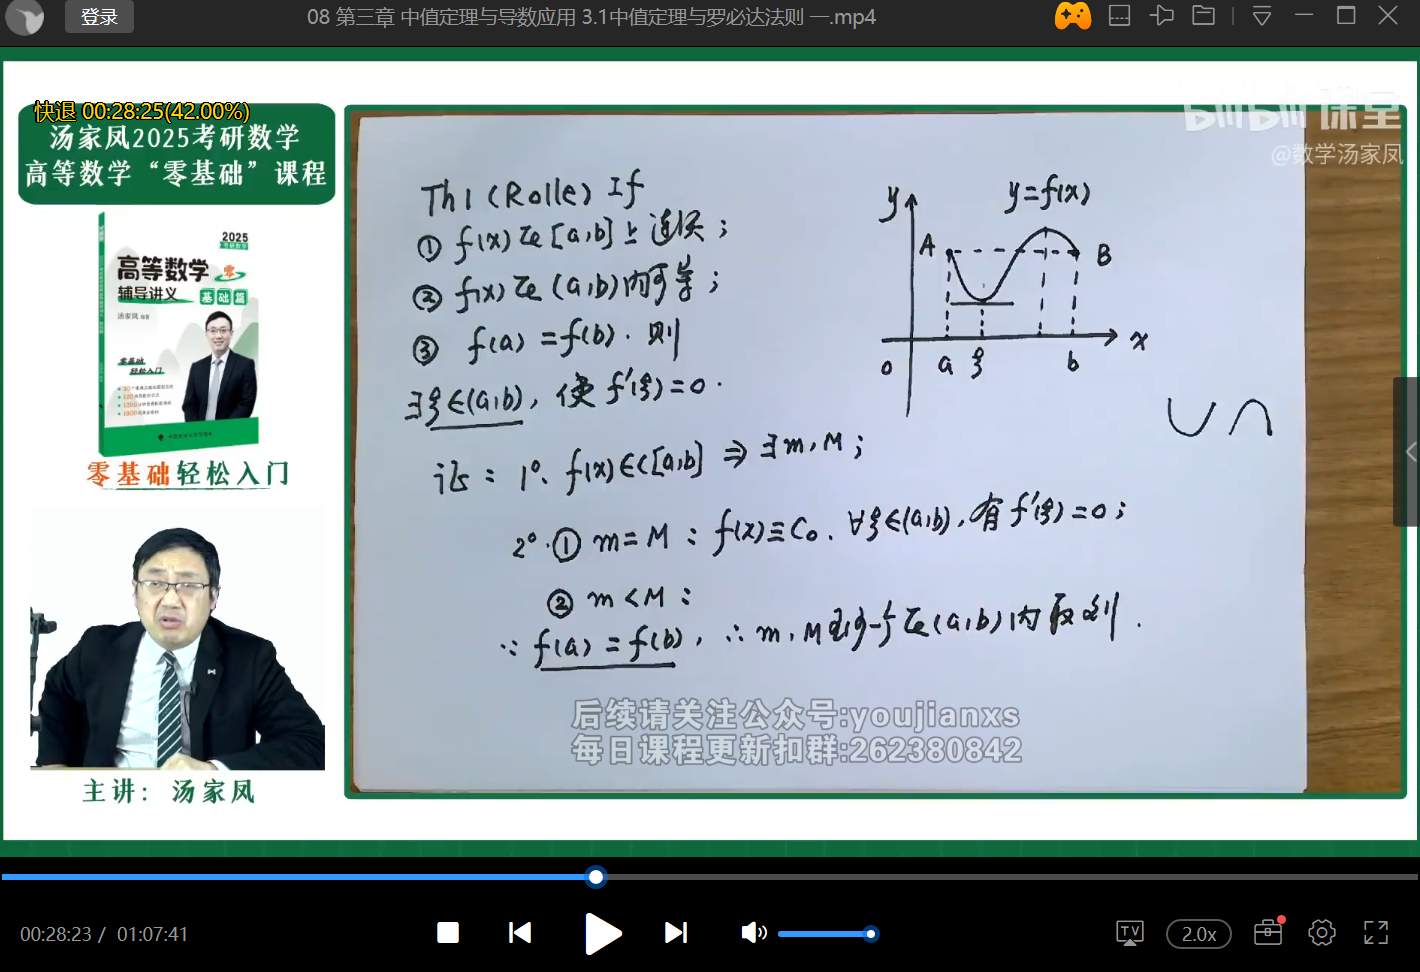 登录
08 第三章 中值定理与导数应用 3.1中值定理与罗必达法则 一.mp4
快退 00:28:25(42.00%)
汤家凤2025考研数学
高等数学“零基础”课程
2025
高等数学 零
辅导讲义 基础篇
汤家凤 编著
零基础
轻松入门
零基础轻松入门
主讲：汤家凤
bilibili 课堂
@数学汤家凤
Th1 (Rolle) If
① f(x)在[a,b]上连续；
② f(x)在(a,b)内可导；
③ f(a)=f(b). 则
∃ξ∈(a,b), 使 f′(ξ)=0.
y
y=f(x)
A
B
0
a
ξ
b
x
证: 1°. f(x)∈C[a,b] ⇒ ∃m,M;
2°. ① m=M: f(x)≡C₀. ∀ξ∈(a,b), 有 f′(ξ)=0;
② m<M:
∵ f(a)=f(b), ∴ m,M至少一个在(a,b)内取到.
后续请关注公众号:youjianxs
每日课程更新扣群:262380842
00:28:23 / 01:07:41
TV
2.0x